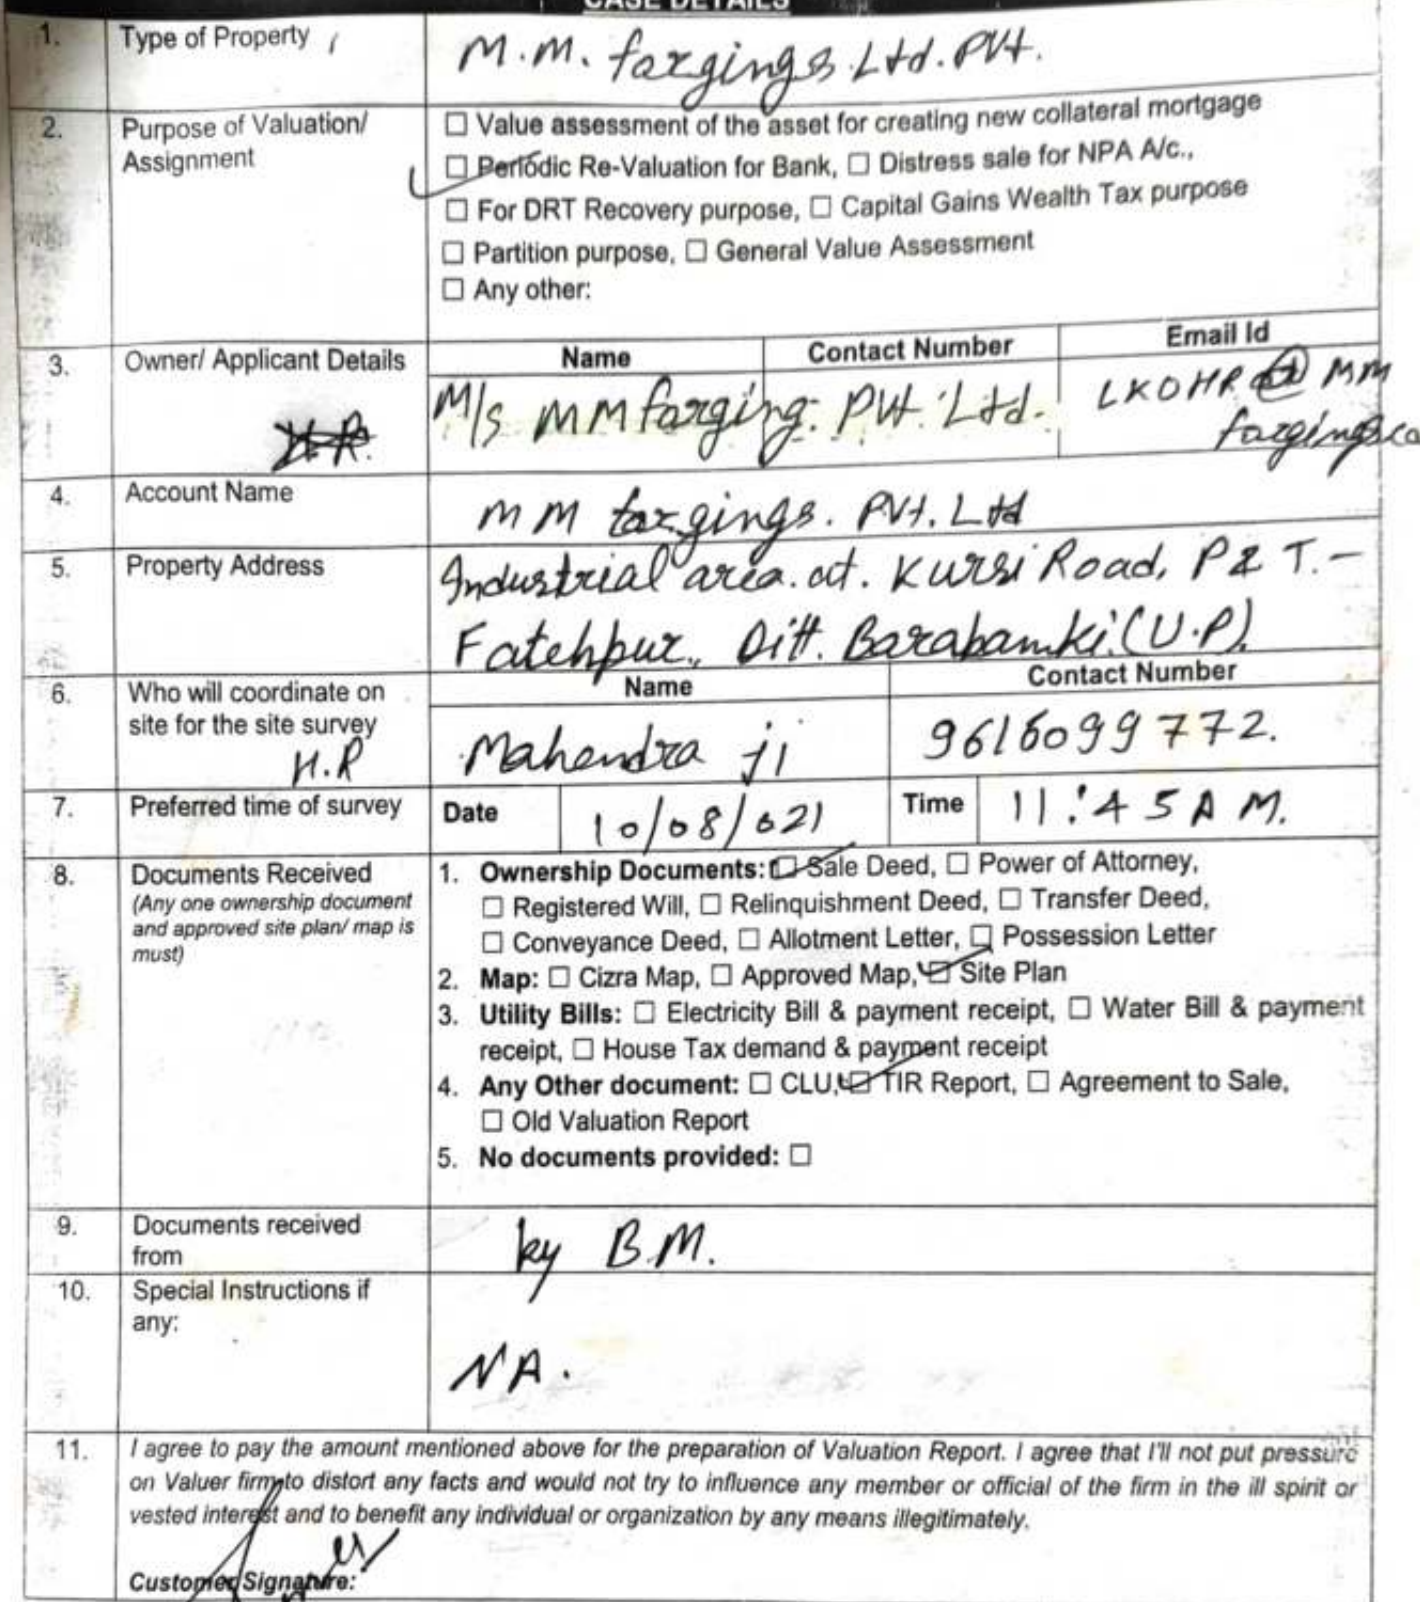 CASE DETAILS
1. Type of Property M.M. fargings Ltd. PVt.
2. Purpose of Valuation/ Assignment
☐ Value assessment of the asset for creating new collateral mortgage
☑ Periodic Re-Valuation for Bank, ☐ Distress sale for NPA A/c.,
☐ For DRT Recovery purpose, ☐ Capital Gains Wealth Tax purpose
☐ Partition purpose, ☐ General Value Assessment
☐ Any other:
3. Owner/ Applicant Details
H.R.
Name Contact Number Email Id
M/s MM farging. PVt. Ltd. LKOHR@MM
fargings.co
4. Account Name MM fargings. PVt. Ltd
5. Property Address Industrial area. at. Kursi Road, P& T.-
Fatehpur, Ditt. Barabanki (U.P).
6. Who will coordinate on
site for the site survey
H.R
Name Contact Number
Mahendra ji 9616099772.
7. Preferred time of survey Date 10/08/021 Time 11:45 A M.
8. Documents Received
(Any one ownership document
and approved site plan/ map is
must)
1. Ownership Documents: ☑ Sale Deed, ☐ Power of Attorney,
☐ Registered Will, ☐ Relinquishment Deed, ☐ Transfer Deed,
☐ Conveyance Deed, ☐ Allotment Letter, ☐ Possession Letter
2. Map: ☐ Cizra Map, ☐ Approved Map, ☑ Site Plan
3. Utility Bills: ☐ Electricity Bill & payment receipt, ☐ Water Bill & payment
receipt, ☐ House Tax demand & payment receipt
4. Any Other document: ☐ CLU, ☑ TIR Report, ☐ Agreement to Sale,
☐ Old Valuation Report
5. No documents provided: ☐
9. Documents received
from
by B.M.
10. Special Instructions if
any:
NA.
11. I agree to pay the amount mentioned above for the preparation of Valuation Report. I agree that I'll not put pressure
on Valuer firm to distort any facts and would not try to influence any member or official of the firm in the ill spirit or
vested interest and to benefit any individual or organization by any means illegitimately.
Customer Signature: